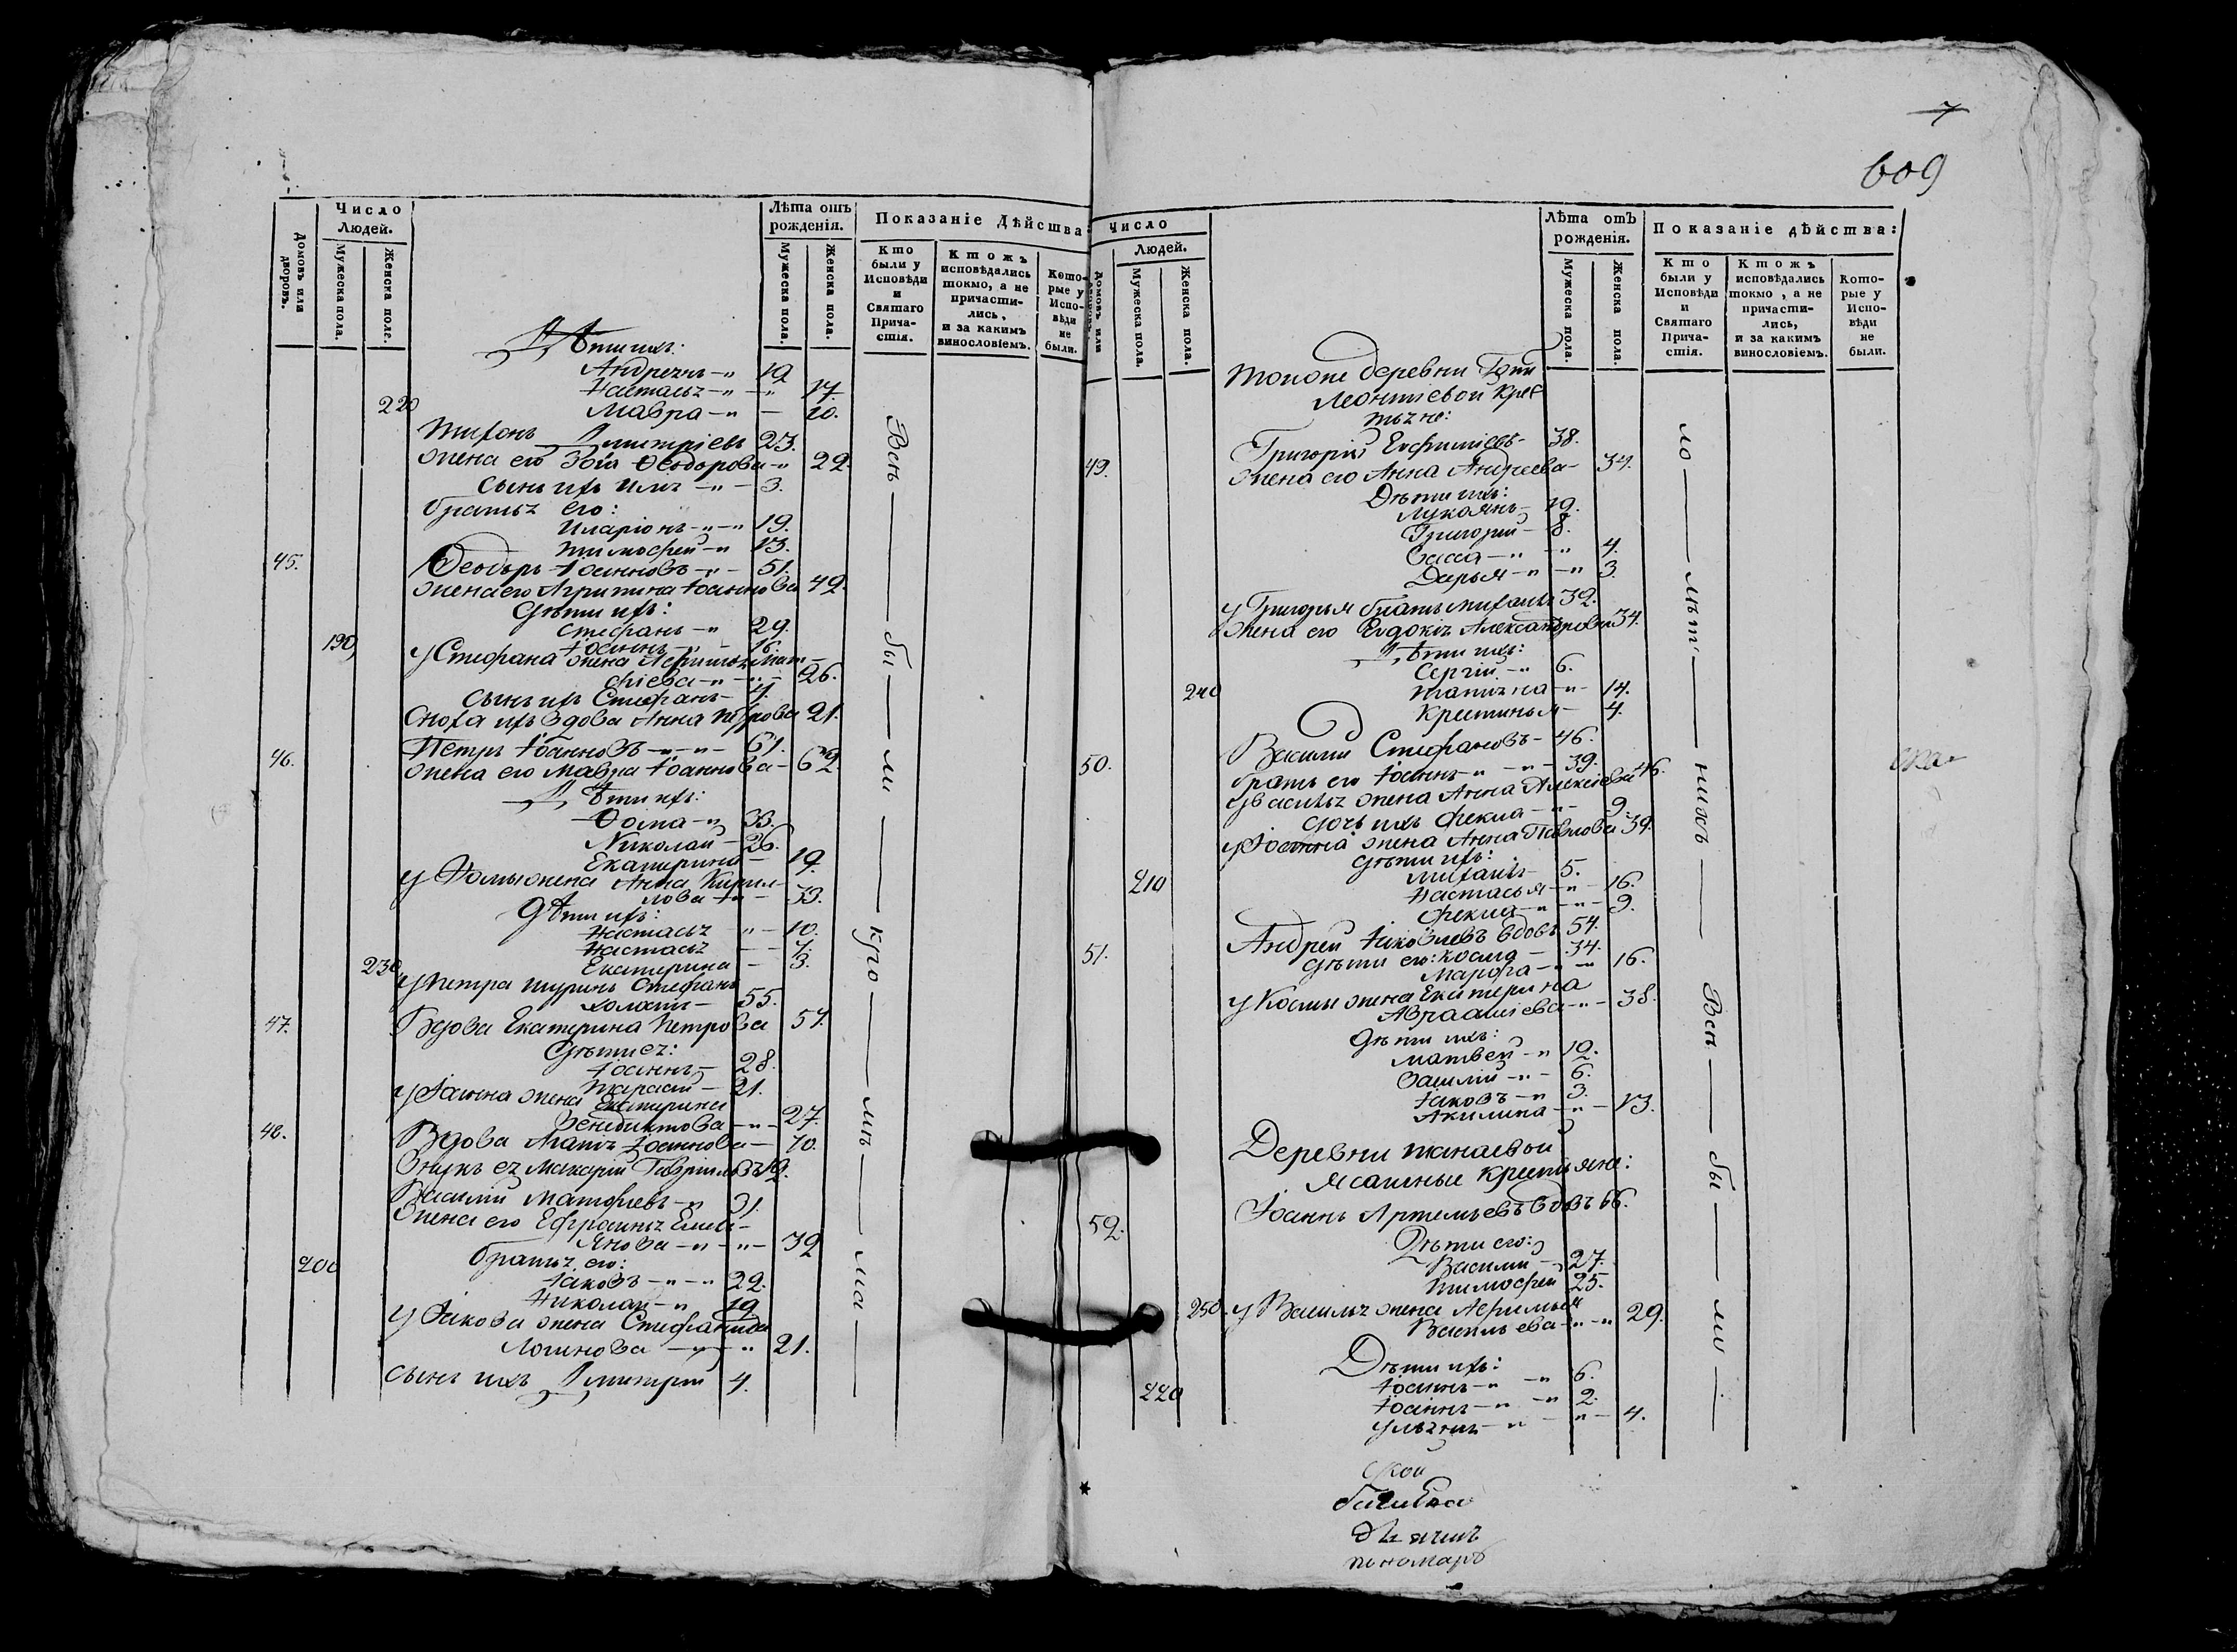 Домовъ или дворовъ.
Число Людей.
Мужеска пола.
Женска пола.
Лѣта отъ рожденія.
Мужеска пола.
Женска пола.
Показаніе Дѣйства:
Кто были у Исповѣди и Святаго Причастія.
Ктожъ исповѣдались токмо, а не причастились, и за какимъ винословіемъ.
Которые у Исповѣди не были.
Дѣти ихъ:
Андреянъ 19
Настасья 17.
220 Мавра 10.
Тихонъ Димитріевъ 23.
Жена его Зоіа Ѳеодорова 22.
Сынъ ихъ 3.
Братья его:
Иларіонъ 19.
Тимофей 13.
45. Ѳеодоръ Іоанновъ 51.
Жена его Агрипина Іоаннова 49.
Дѣти ихъ:
Стефанъ 29.
190 Іоаннъ 16.
У Стефана жена Афимья Мат-
фіева 26.
Сынъ ихъ Стефанъ 4.
Сноха ихъ вдова Анна Петрова 21.
46. Петръ Іоанновъ 61.
Жена его Мавра Іоаннова 62
Дѣти ихъ:
Ѳома 33.
Николай 26.
Екатерина 19.
У Ѳомы жена Анна Кирил-
лова 33.
Дѣти ихъ:
Настасья 10.
Настасья 7.
230 Екатерина 3.
У Петра шуринъ Стефанъ
55.
47. Вдова Екатерина Петрова 57.
Дѣти ея:
Іоаннъ 28.
Тарасій 21.
У Іоанна жена Екатерина
Венедиктова 27.
48. Вдова Іоаннова 70.
Внукъ ея Макарій Гавріиловъ 19.
Василій Матфеевъ 31.
Жена его Ефросинья Емель-
янова 32
Братья его:
200 Іаковъ 22.
Николай 19
У Іакова жена Стефанида
Логинова 21.
Сынъ ихъ Димитрій 4.
Всѣ бы ли
7
609
Число Людей.
Домовъ или дворовъ.
Мужеска пола.
Женска пола.
Лѣта отъ рожденія.
Мужеска пола.
Женска пола.
Показаніе дѣйства:
Кто были у Исповѣди и Святаго Причастія.
Ктожъ исповѣдались токмо, а не причастились, и за какимъ винословіемъ.
Которые у Исповѣди не были.
Тоиже деревни
Леонтіевой крес
тьяне:
49. Григорій Евфиміевъ 38.
Жена его Анна Андреева 34.
Дѣти ихъ:
Лукоянъ 19.
Григорій 8.
Васса 4.
Дарья 3.
У Григорья братъ Михаилъ 32.
Жена его Евдокія Александрова 34.
Дѣти ихъ:
Сергій 6.
240 Татіяна 14.
Крестинья 4.
50. Василій Стефановъ 46.
Братъ его Іоаннъ 39.
У Василья жена Анна Алексіева 46.
Дочь ихъ Фекла 9.
У Іоанна жена Анна Павлова 39.
Дѣти ихъ:
210 Михаилъ 5.
Настасья 16.
Фекла 9.
51. Андрей Іаковлевъ вдовъ 54.
Дѣти его: Косма 34.
Марфа 16.
У Космы жена Екатерина
Аврааміева 38.
Дѣти ихъ:
Матвей 12.
Василій 6.
Іаковъ 3.
Акилина 13.
Деревни Танаевой
ясашные крестьяне:
52. Іоаннъ Артемьевъ вдовъ 66.
Дѣти его:
Василій 27.
Тимофей 25.
250 У Василья жена Афимья
Васильева 29.
Дѣти ихъ:
Іоаннъ 6.
220 Іоаннъ 2.
Ульяна 4.
Всѣ бы ли
пономарь